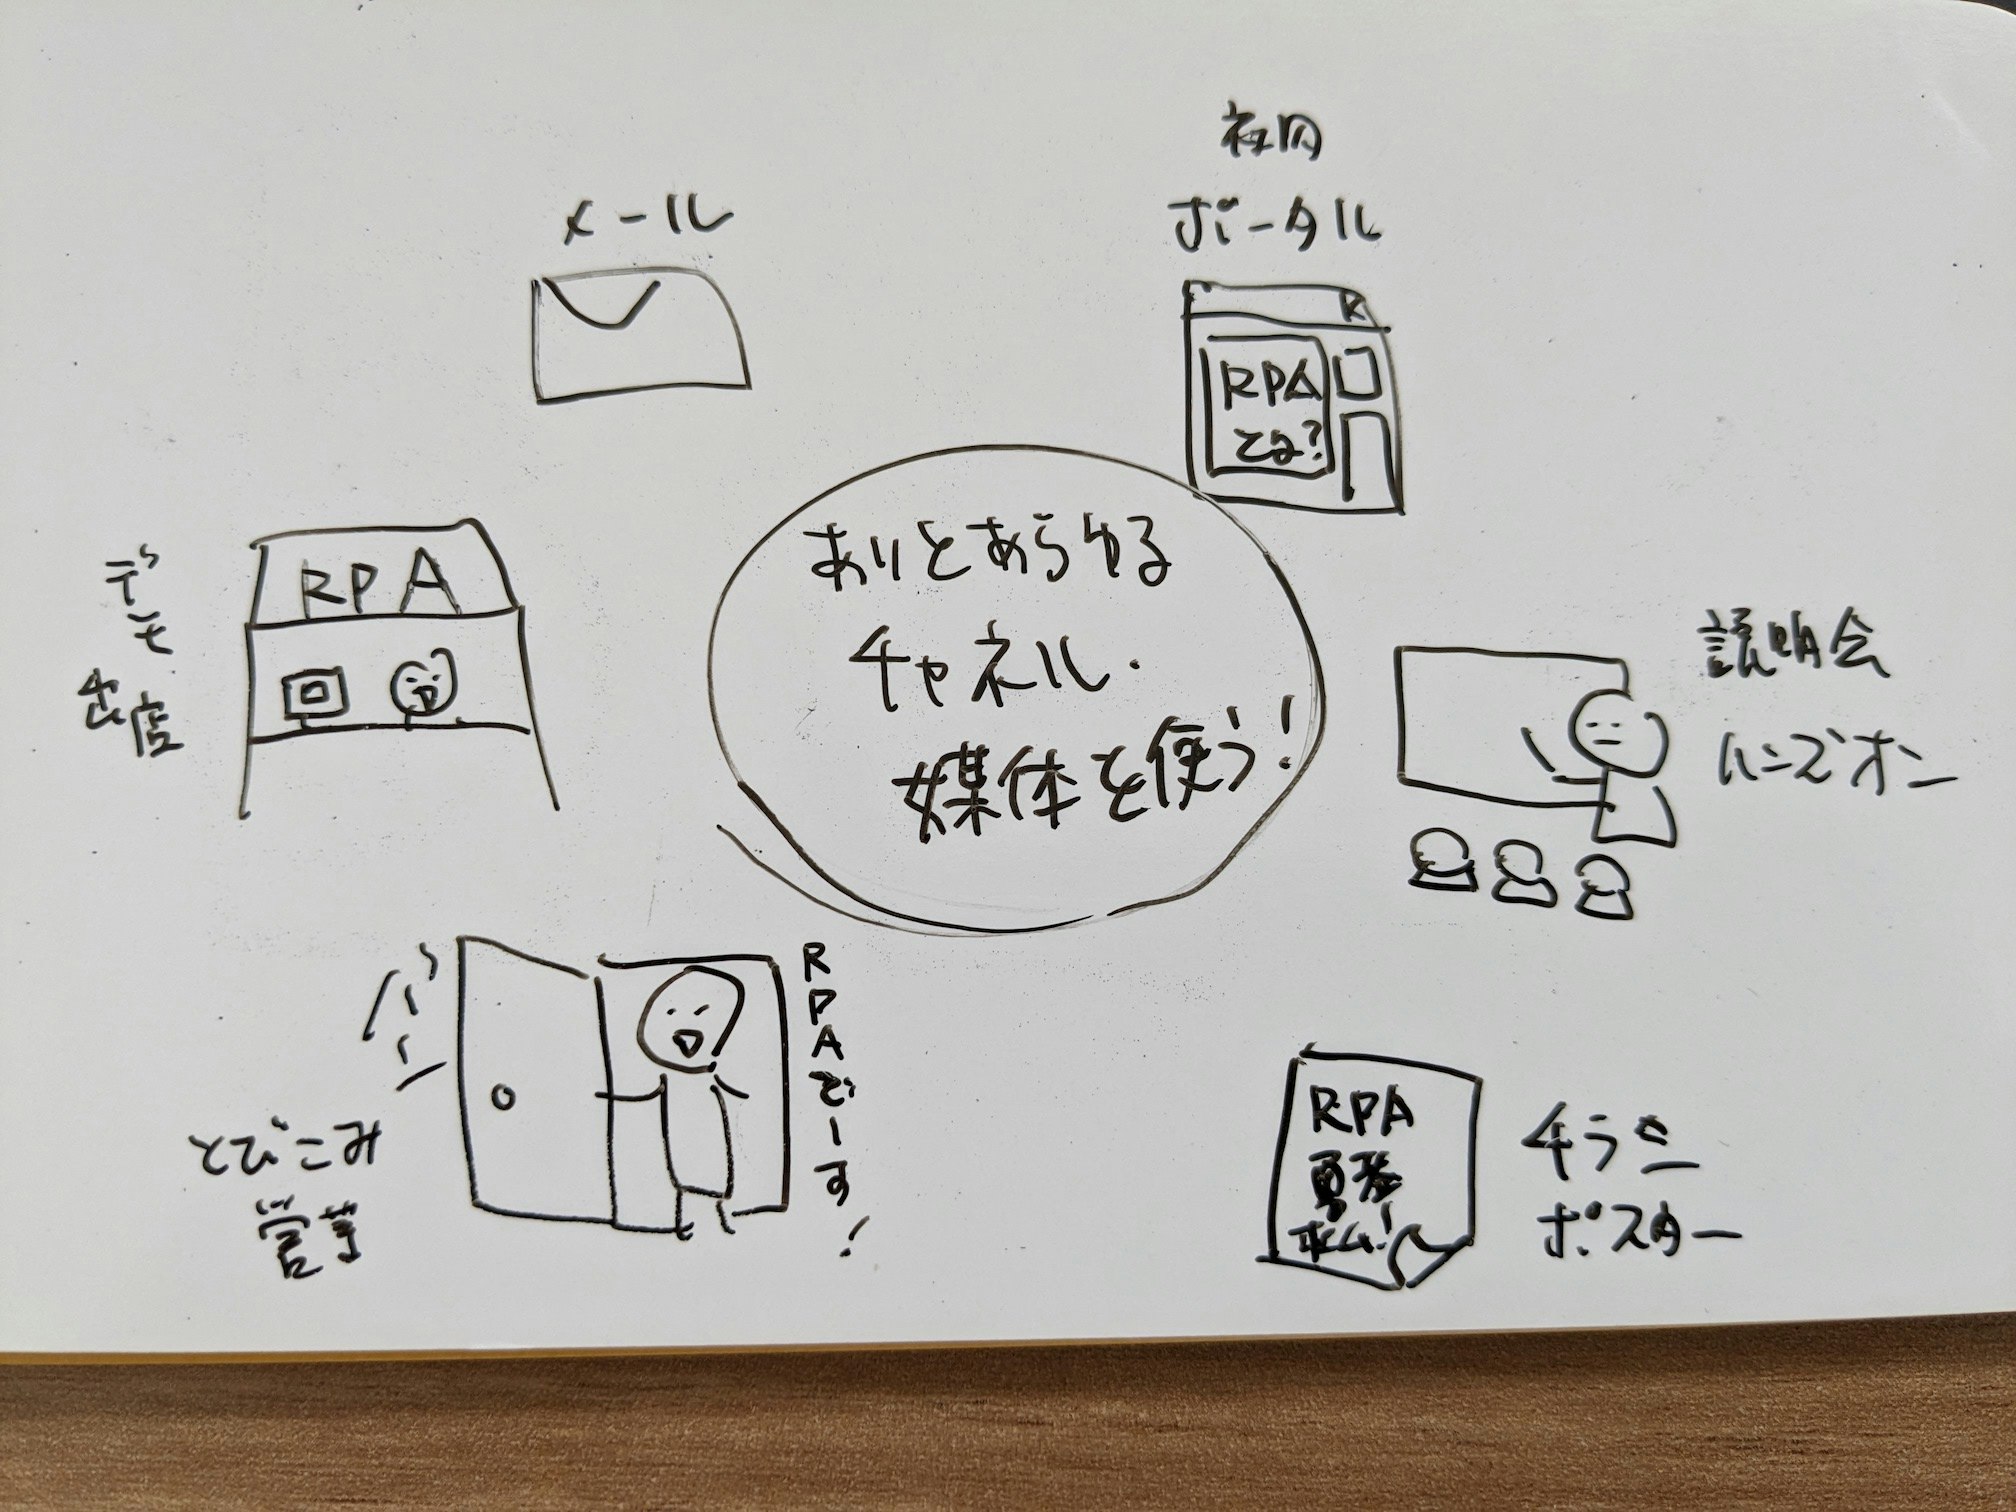 社内
ポータル
メール
RPA
とは?
ありとあらゆる
チャネル・
媒体を使う!
デモ
出店
RPA
説明会
ハンズオン
バーン
RPAでーす!
とびこみ
営業
RPA
勇者
求ム!
チラシ
ポスター